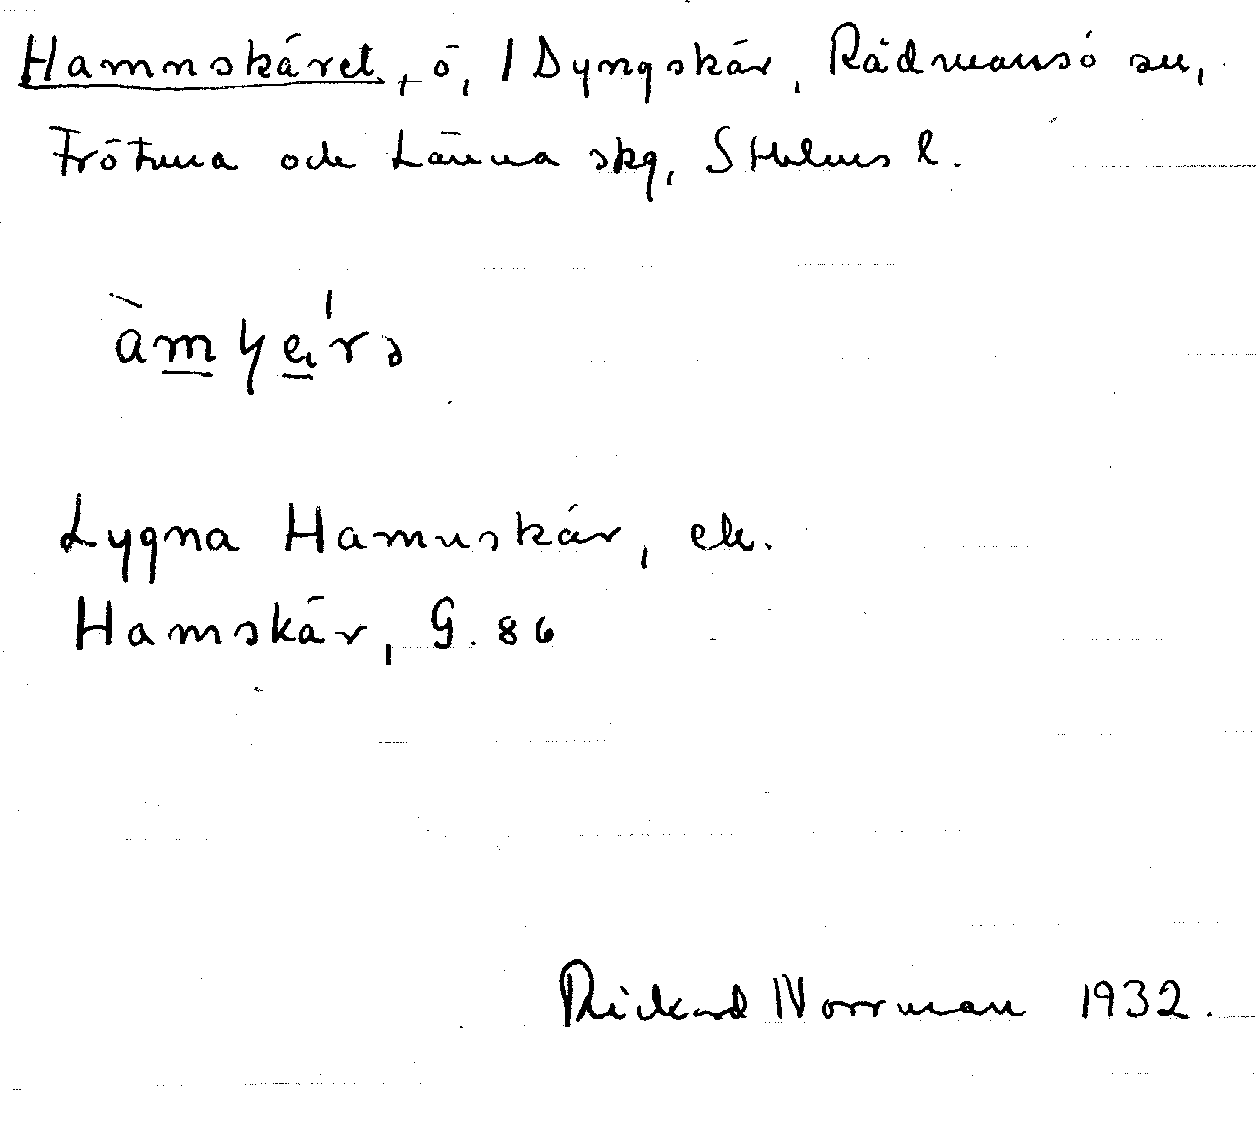 Hamnskäret, ö, / Dyngskär, Rådmansö sn,
Frötuna och Länna skg, Sthlms l.
Lygna Hamnskär, ek.
Hamskär, G. 86
Rickard Norrman 1932.